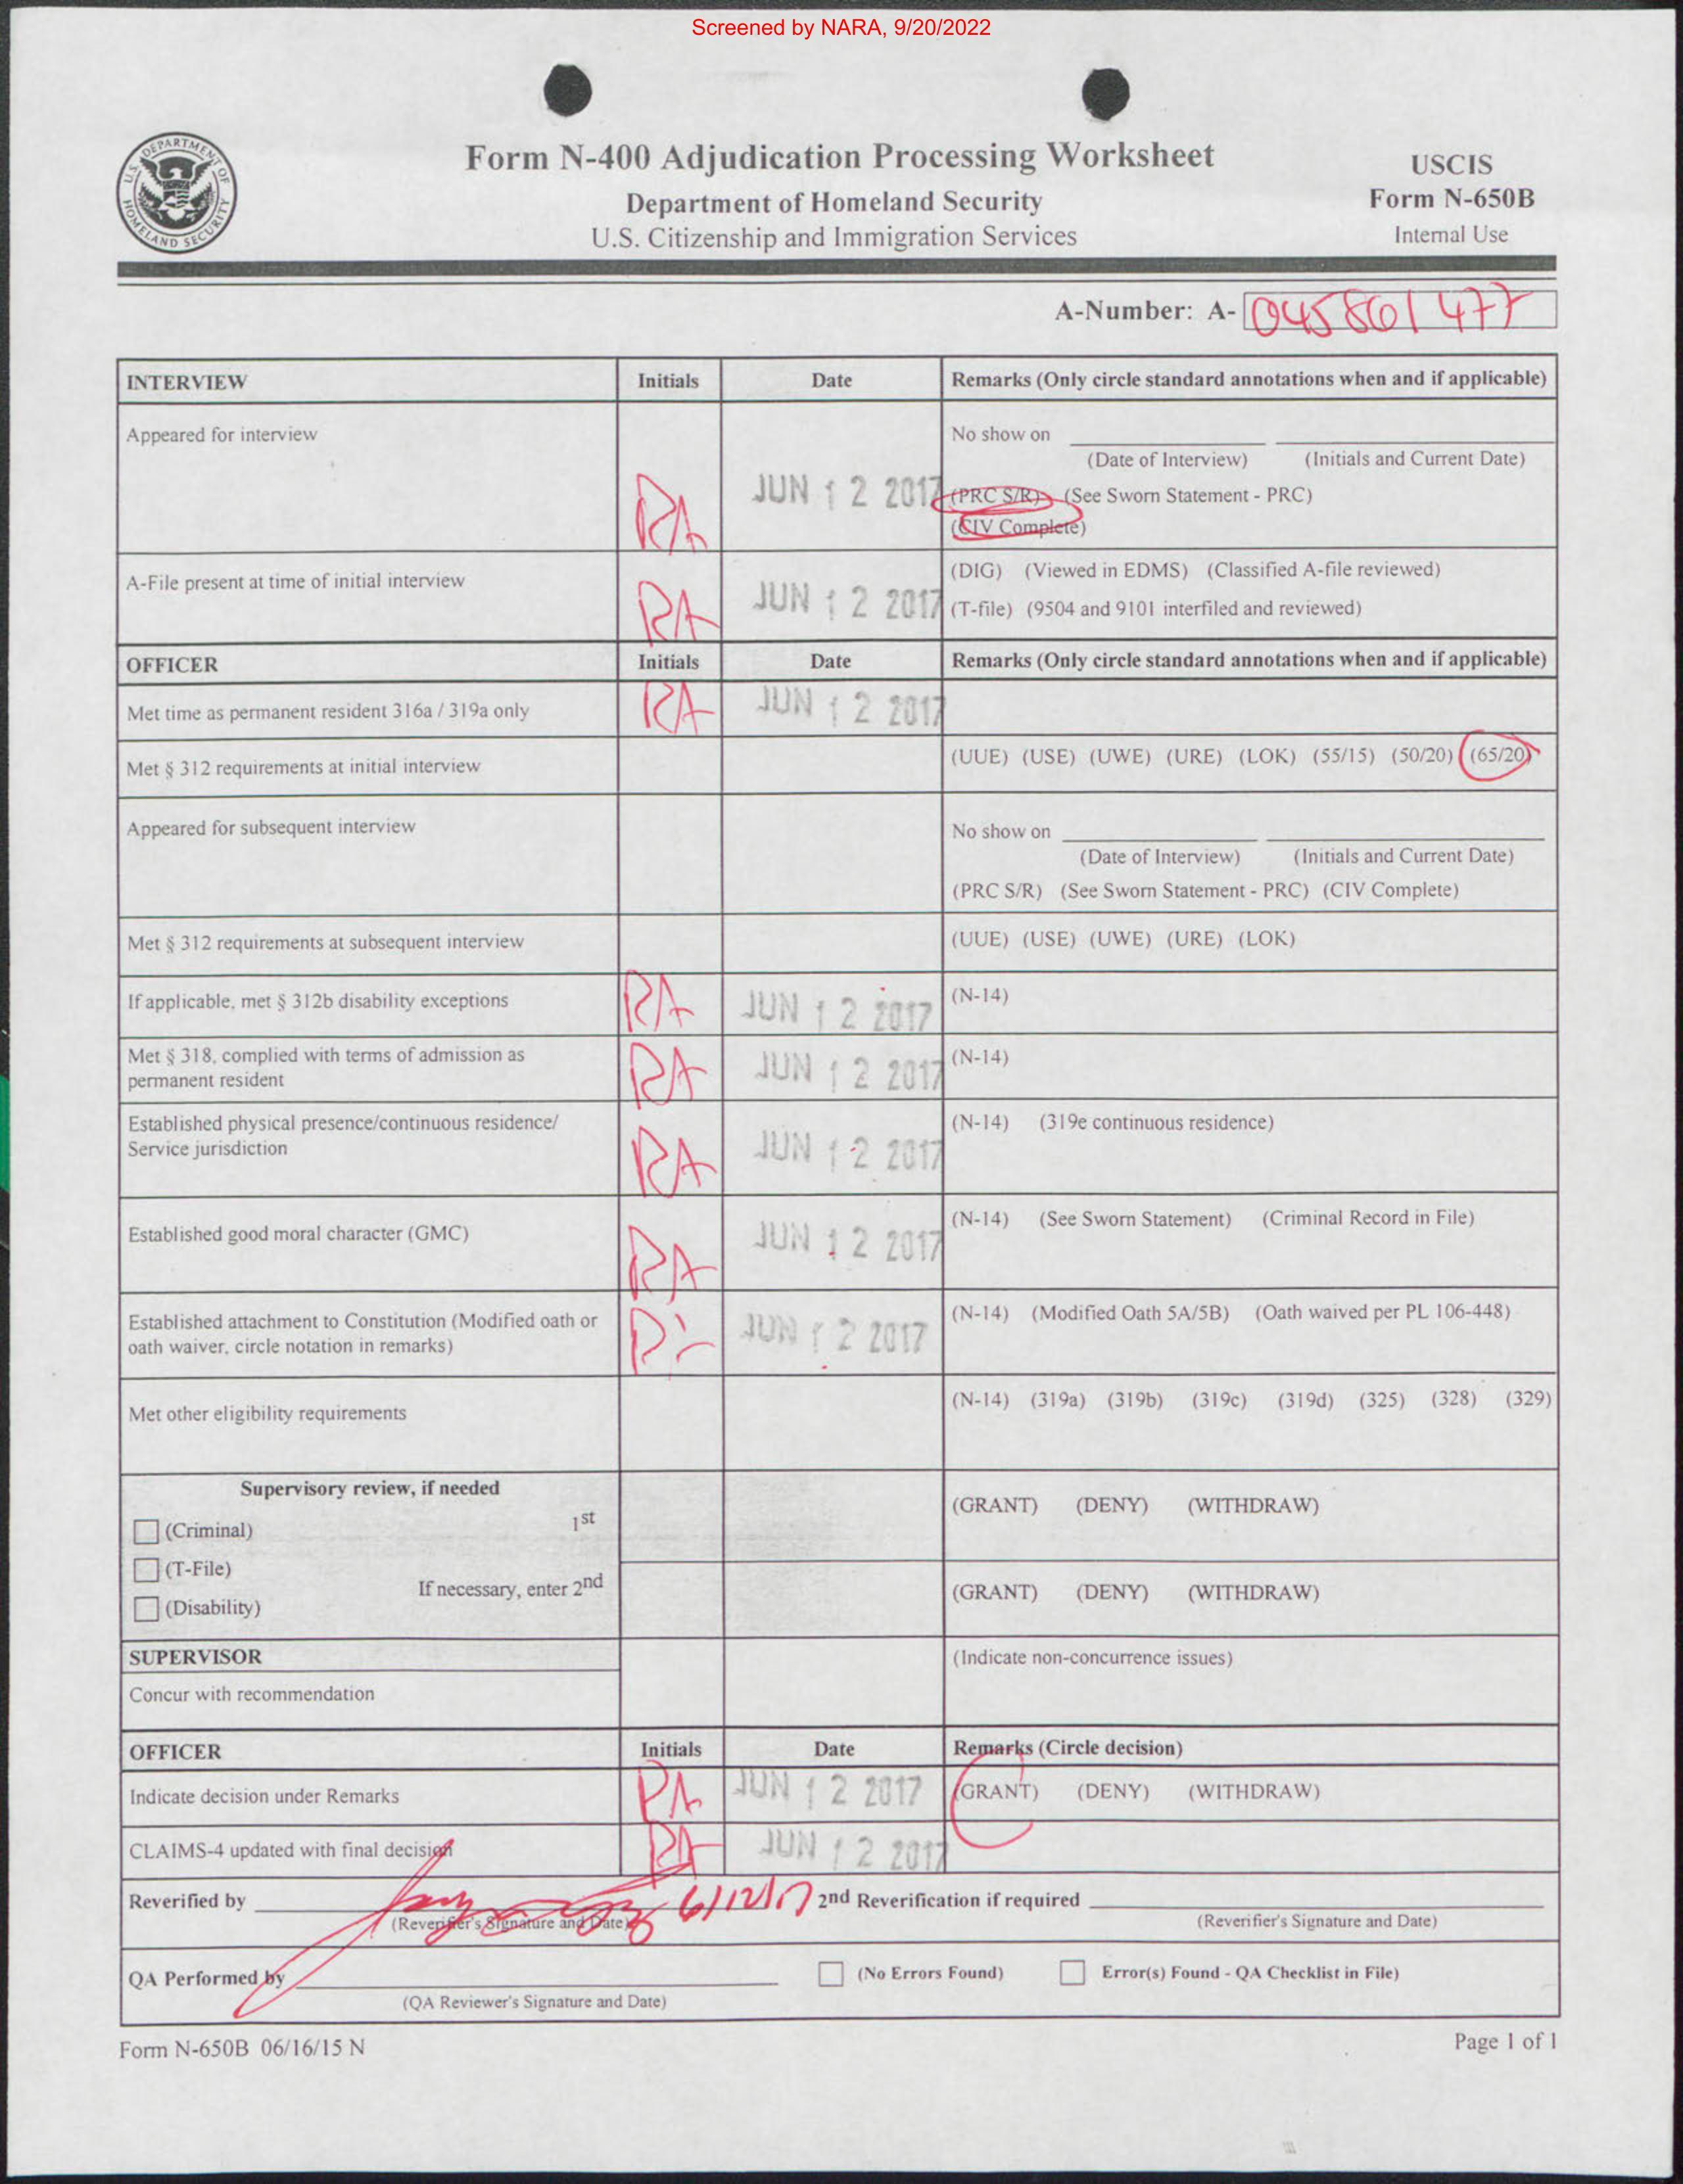 Screened by NARA, 9/20/2022
U.S. DEPARTMENT OF HOMELAND SECURITY
Form N-400 Adjudication Processing Worksheet
Department of Homeland Security
U.S. Citizenship and Immigration Services
USCIS
Form N-650B
Internal Use
A-Number: A- 045861477
INTERVIEW Initials Date Remarks (Only circle standard annotations when and if applicable)
Appeared for interview
No show on
(Date of Interview) (Initials and Current Date)
RA JUN 12 2017 (PRC S/R) (See Sworn Statement - PRC)
(CIV Complete)
A-File present at time of initial interview RA JUN 12 2017 (DIG) (Viewed in EDMS) (Classified A-file reviewed)
(T-file) (9504 and 9101 interfiled and reviewed)
OFFICER Initials Date Remarks (Only circle standard annotations when and if applicable)
Met time as permanent resident 316a / 319a only RA JUN 12 2017
Met § 312 requirements at initial interview (UUE) (USE) (UWE) (URE) (LOK) (55/15) (50/20) (65/20)
Appeared for subsequent interview No show on
(Date of Interview) (Initials and Current Date)
(PRC S/R) (See Sworn Statement - PRC) (CIV Complete)
Met § 312 requirements at subsequent interview (UUE) (USE) (UWE) (URE) (LOK)
If applicable, met § 312b disability exceptions RA JUN 12 2017 (N-14)
Met § 318, complied with terms of admission as
permanent resident RA JUN 12 2017 (N-14)
Established physical presence/continuous residence/
Service jurisdiction RA JUN 12 2017 (N-14) (319e continuous residence)
Established good moral character (GMC) RA JUN 12 2017 (N-14) (See Sworn Statement) (Criminal Record in File)
Established attachment to Constitution (Modified oath or
oath waiver, circle notation in remarks) JUN 12 2017 (N-14) (Modified Oath 5A/5B) (Oath waived per PL 106-448)
Met other eligibility requirements (N-14) (319a) (319b) (319c) (319d) (325) (328) (329)
Supervisory review, if needed
(Criminal) 1st (GRANT) (DENY) (WITHDRAW)
(T-File)
If necessary, enter 2nd (GRANT) (DENY) (WITHDRAW)
(Disability)
SUPERVISOR (Indicate non-concurrence issues)
Concur with recommendation
OFFICER Initials Date Remarks (Circle decision)
Indicate decision under Remarks RA JUN 12 2017 (GRANT) (DENY) (WITHDRAW)
CLAIMS-4 updated with final decision RA JUN 12 2017
Reverified by 6/12/17 2nd Reverification if required
(Reverifier's Signature and Date) (Reverifier's Signature and Date)
QA Performed by (No Errors Found) Error(s) Found - QA Checklist in File)
(QA Reviewer's Signature and Date)
Form N-650B 06/16/15 N Page 1 of 1